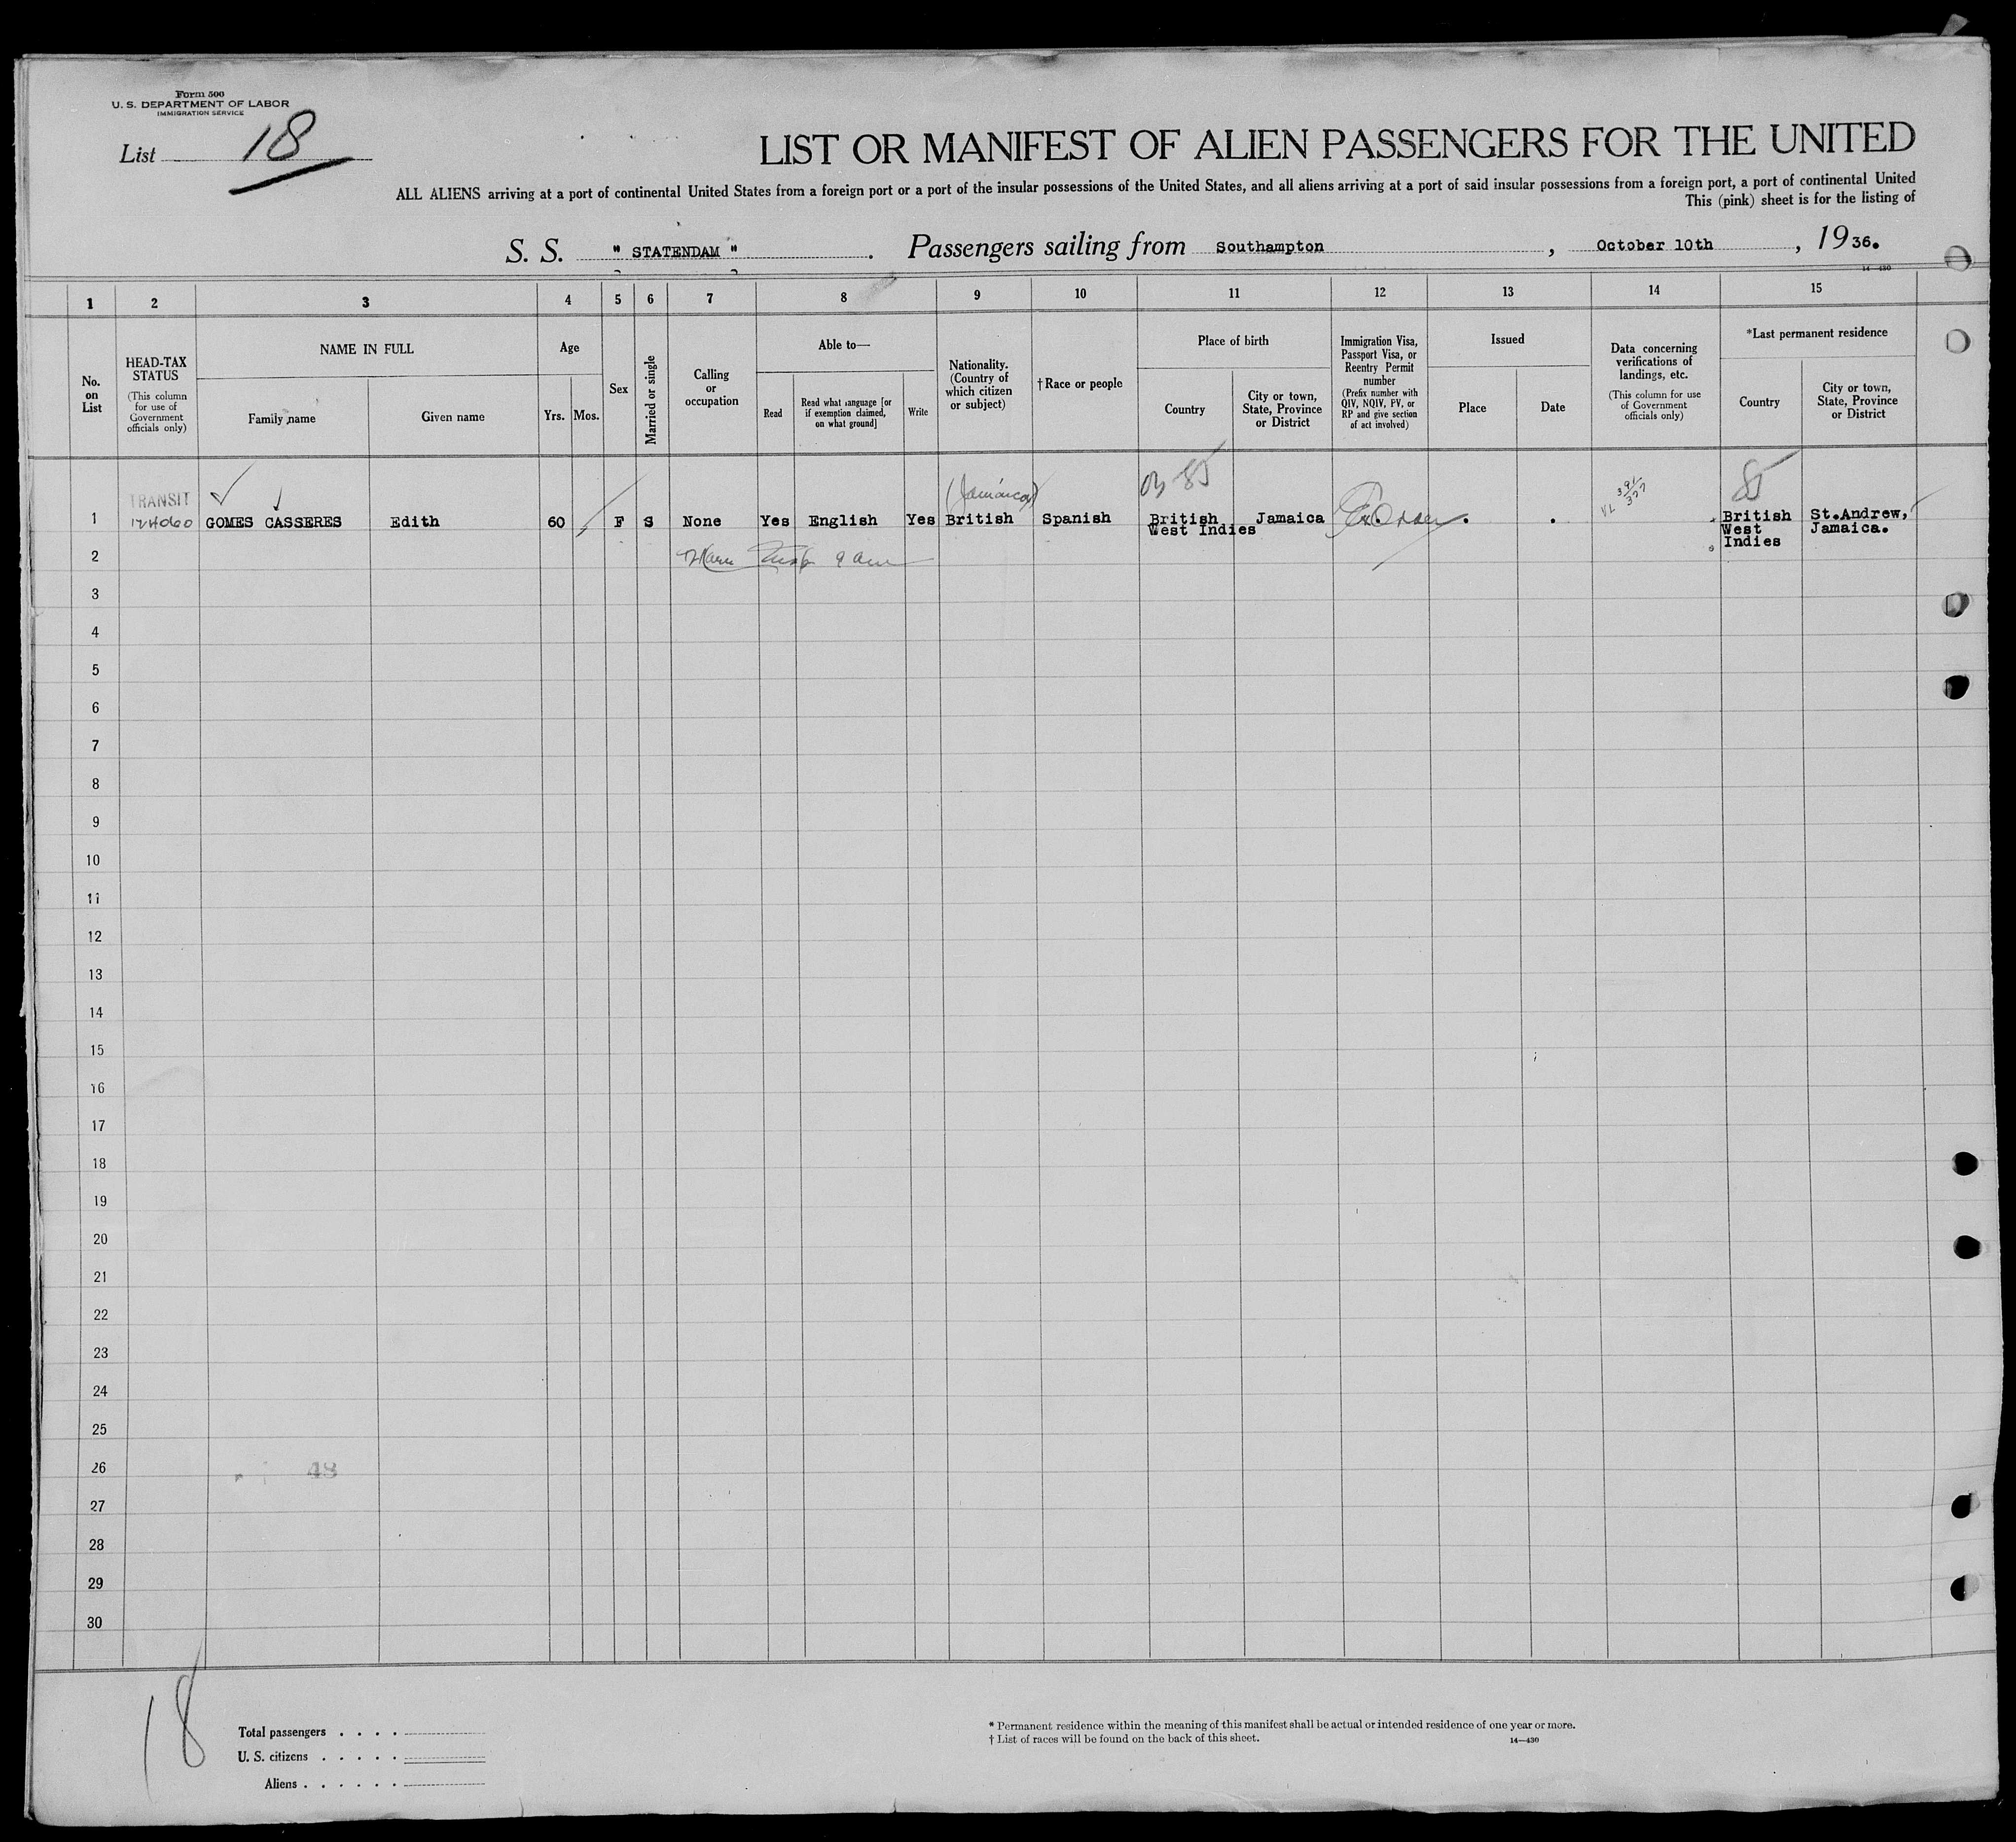 Form 500
U. S. DEPARTMENT OF LABOR
IMMIGRATION SERVICE
List 18
LIST OR MANIFEST OF ALIEN PASSENGERS FOR THE UNITED
ALL ALIENS arriving at a port of continental United States from a foreign port or a port of the insular possessions of the United States, and all aliens arriving at a port of said insular possessions from a foreign port, a port of continental United
This (pink) sheet is for the listing of
S. S. " STATENDAM " . Passengers sailing from Southampton , October 10th , 1936.
14—430
1 2 3 4 5 3 6 7 8 9 10 11 12 13 14 15
No. on List
HEAD-TAX STATUS
(This column for use of Government officials only)
NAME IN FULL
Family name
Given name
Age
Yrs. Mos.
Sex
Married or single
Calling or occupation
Able to—
Read
Read what language [or if exemption claimed, on what ground]
Write
Nationality. (Country of which citizen or subject)
†Race or people
Place of birth
Country
City or town, State, Province or District
Immigration Visa, Passport Visa, or Reentry Permit number
(Prefix number with QIV, NQIV, PV, or RP and give section of act involved)
Issued
Place
Date
Data concerning verifications of landings, etc.
(This column for use of Government officials only)
*Last permanent residence
Country
City or town, State, Province or District
TRANSIT
(Jamaica) 85 85
1 GOMES CASSERES Edith 60 F S None Yes English Yes British Spanish British West Indies Jamaica British West Indies St.Andrew, Jamaica.
2
3
4
5
6
7
8
9
10
11
12
13
14
15
16
17
18
19
20
21
22
23
24
25
26 48
27
28
29
30
18
Total passengers . . . .
U. S. citizens . . . . .
Aliens . . . . . .
* Permanent residence within the meaning of this manifest shall be actual or intended residence of one year or more.
† List of races will be found on the back of this sheet. 14—430